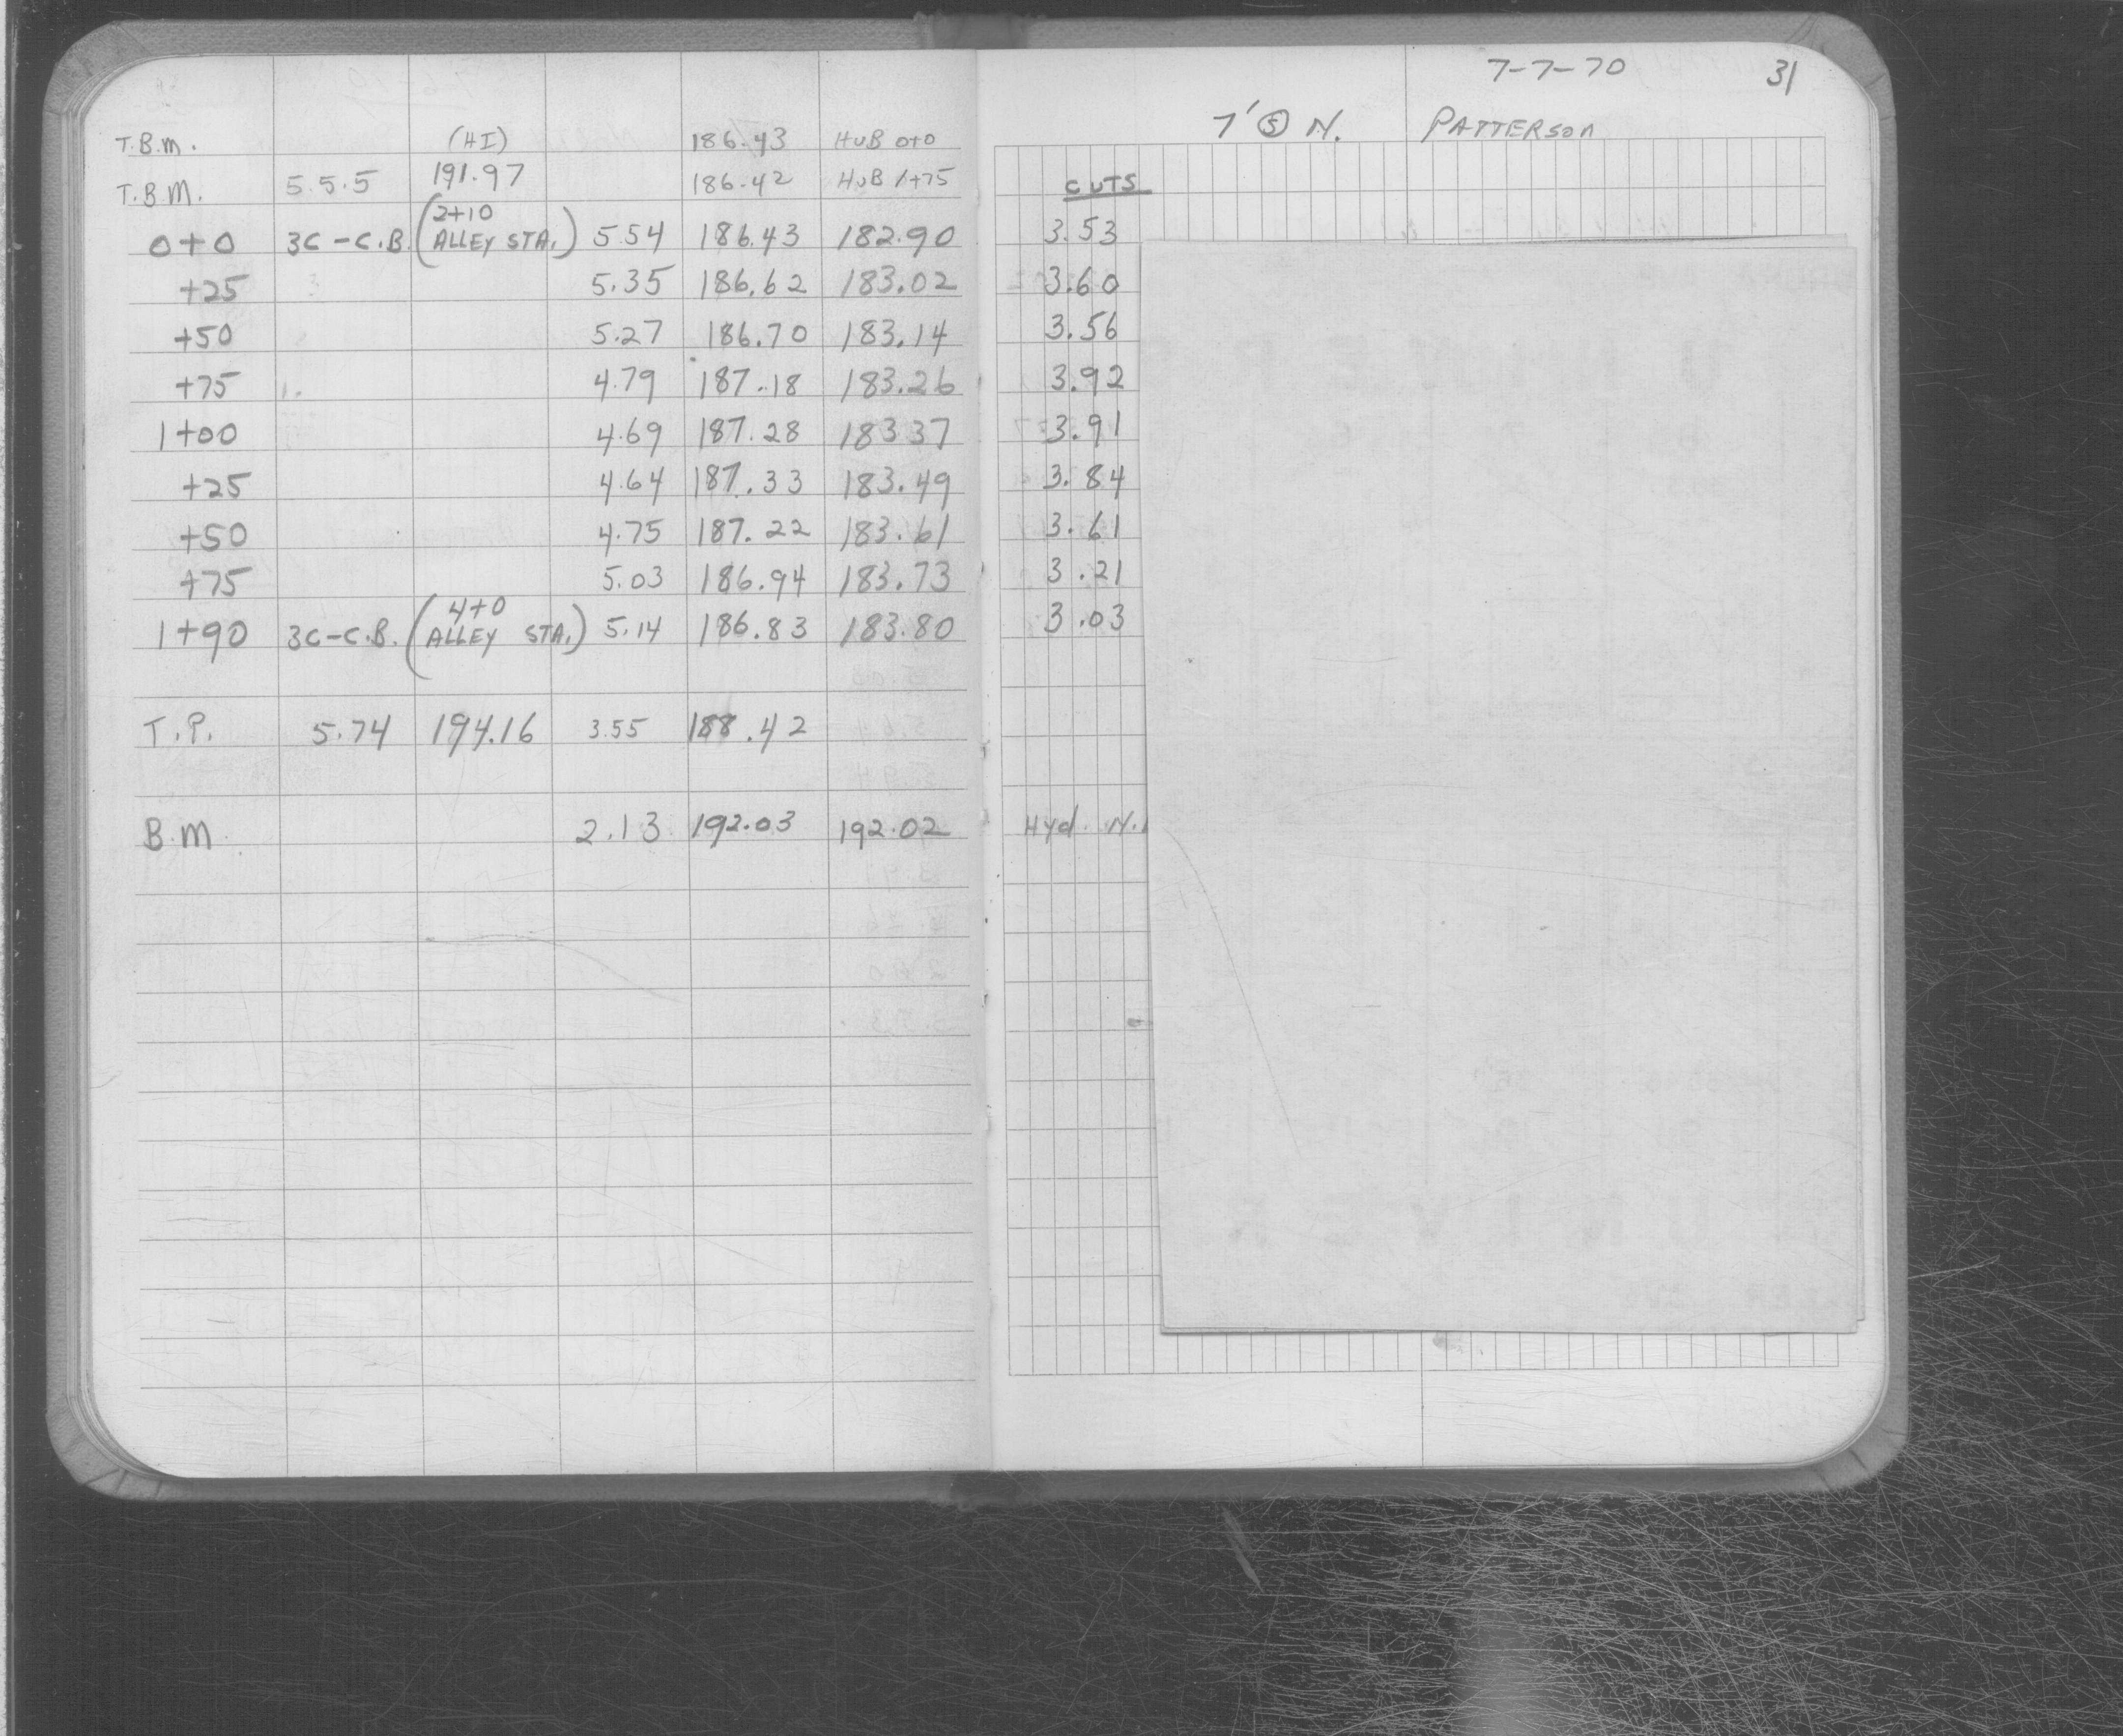 7-7-70 31
7' Ⓢ N. PATTERSON
T.B.M. (HI) 186.43 HUB 0+0
T.B.M. 5.5.5 191.97 186.42 HUB 1+75
CUTS
0+0 3C-C.B. (2+10 ALLEY STA.) 5.54 186.43 182.90 3.53
+25 5.35 186.62 183.02 3.60
+50 5.27 186.70 183.14 3.56
+75 4.79 187.18 183.26 3.92
1+00 4.69 187.28 183.37 3.91
+25 4.64 187.33 183.49 3.84
+50 4.75 187.22 183.61 3.61
+75 5.03 186.94 183.73 3.21
1+90 3C-C.B. (4+0 ALLEY STA.) 5.14 186.83 183.80 3.03
T.P. 5.74 194.16 3.55 188.42
B.M. 2.13 192.03 192.02 Hyd. N.